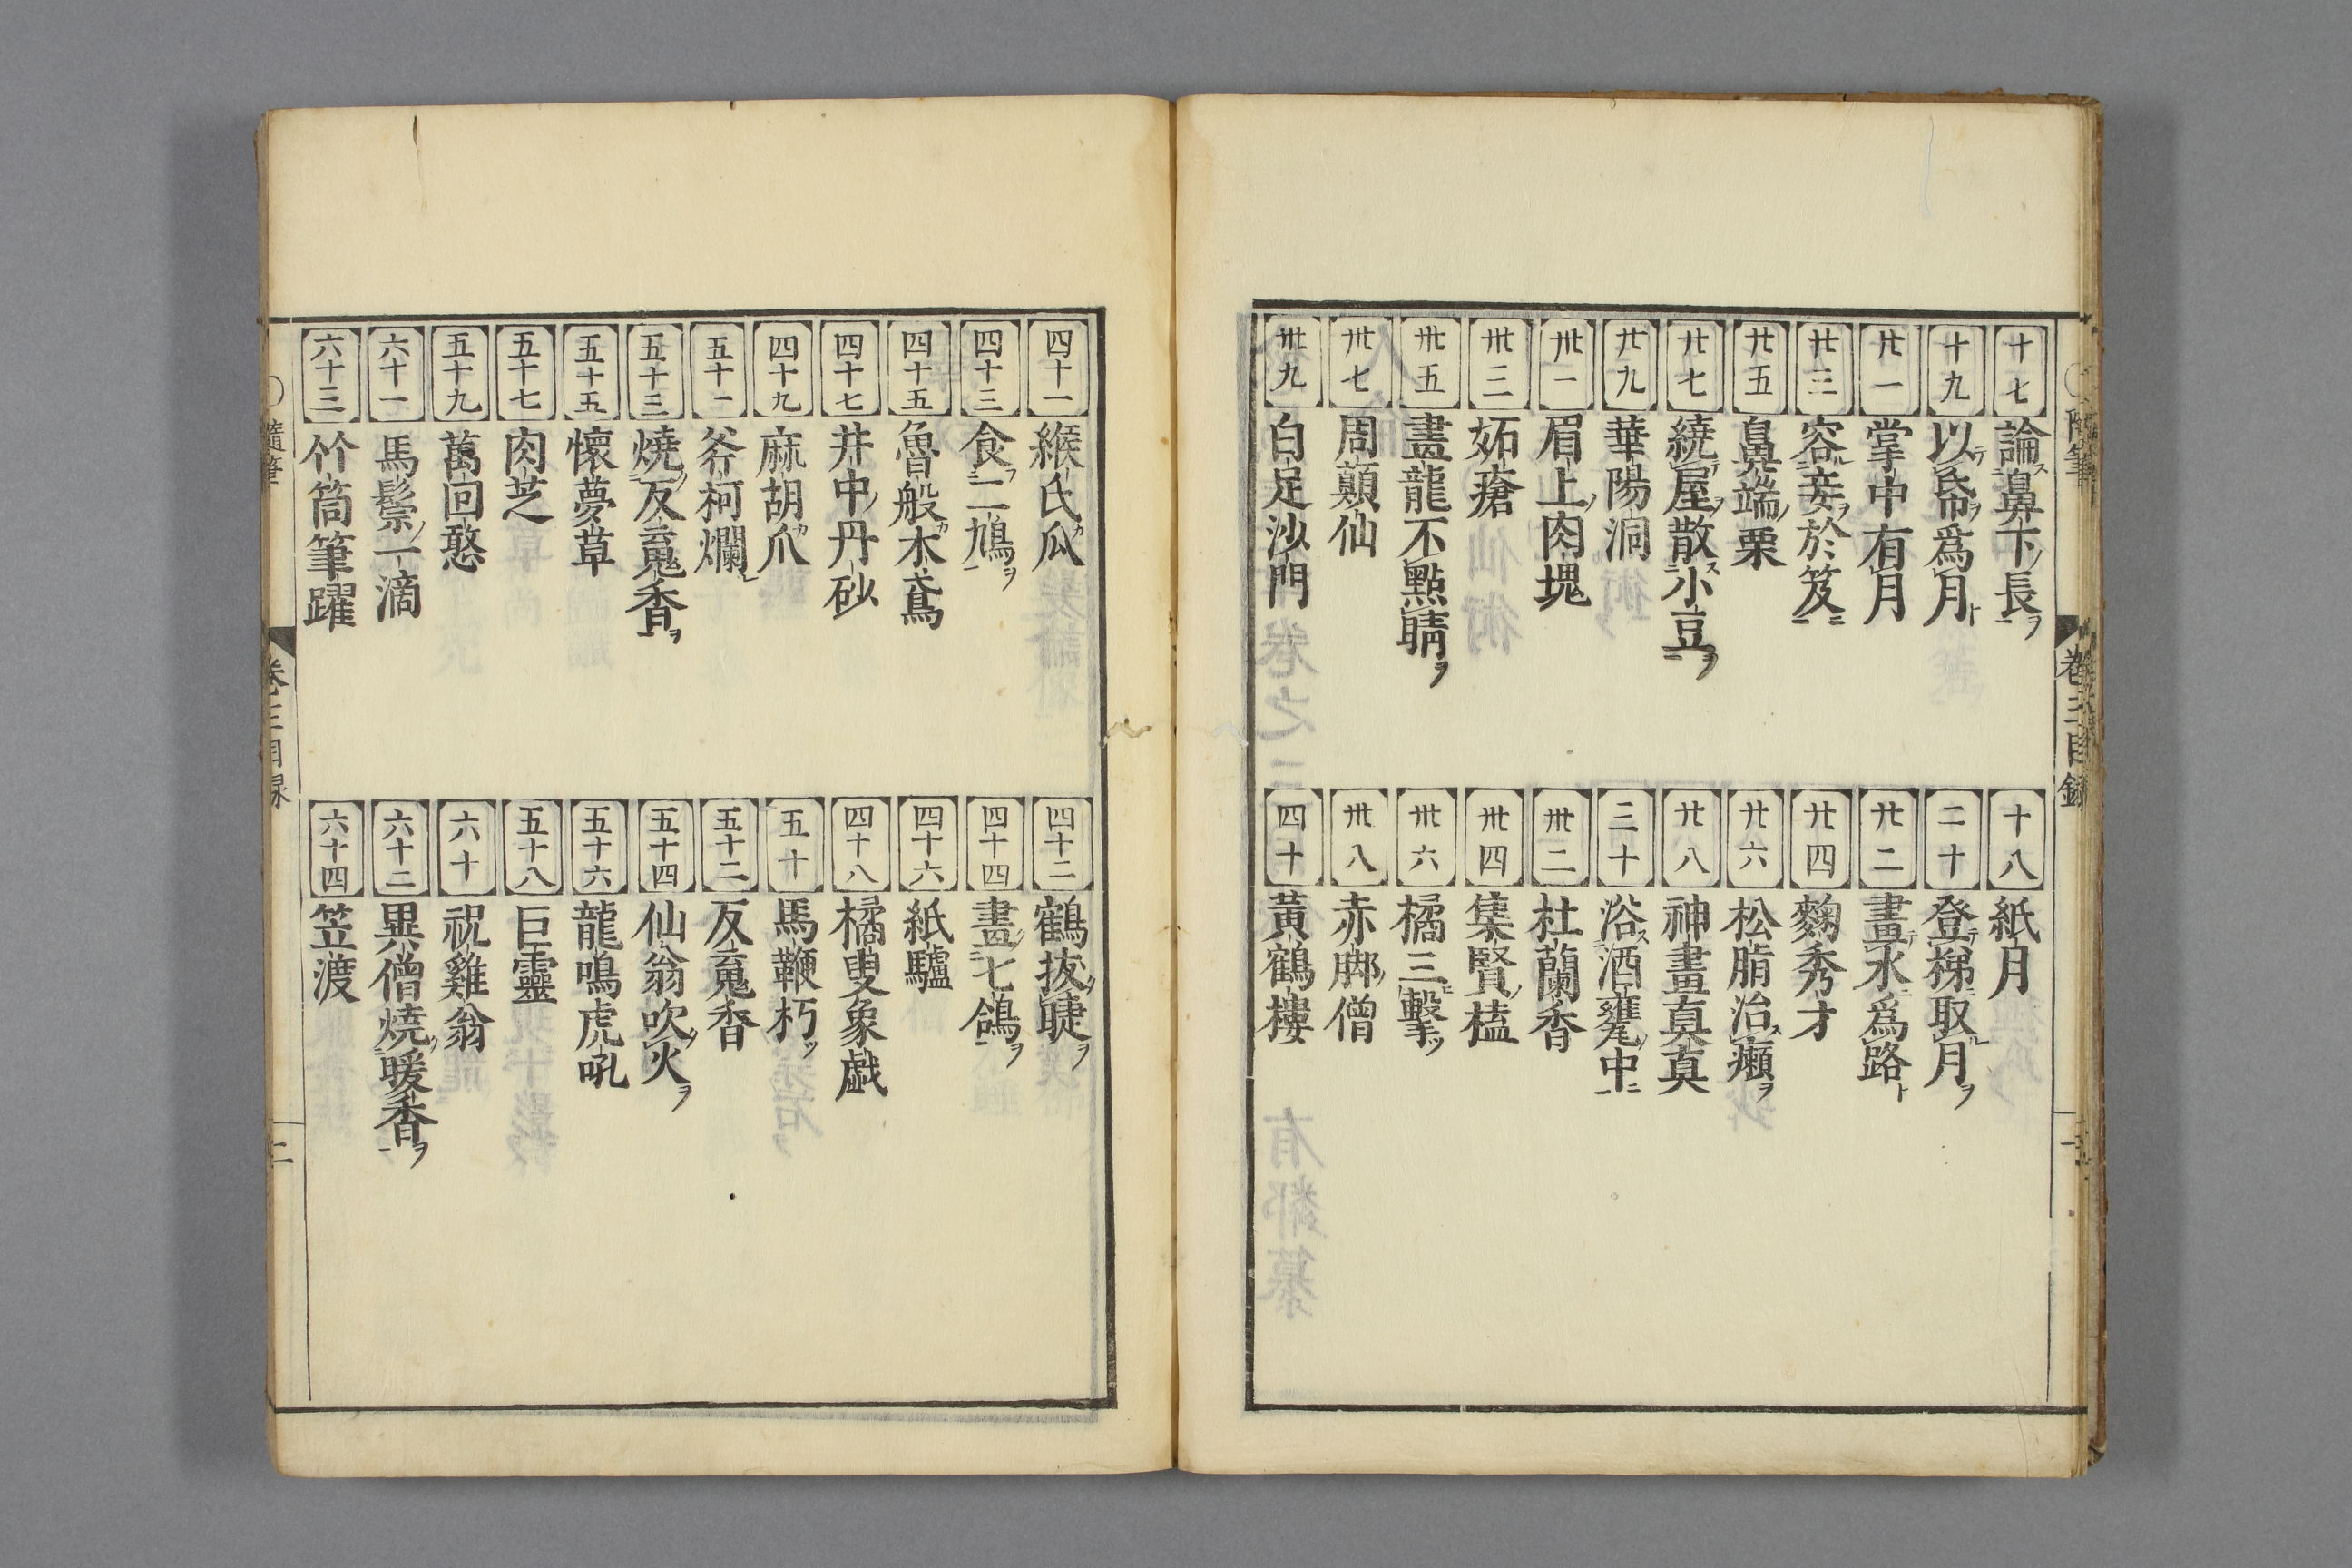 十七 論鼻下長
十八 紙月
十九 以帋爲月
二十 登梯取月
廿一 掌中有月
廿二 畫水爲路
廿三 容妾於笈
廿四 麴秀才
廿五 鼻端栗
廿六 松脂治癩
廿七 繞屋散小豆
廿八 神畫真真
廿九 華陽洞
三十 浴酒甕中
卅一 眉上肉塊
卅二 杜蘭香
卅三 妬瘡
卅四 集賢榼
卅五 畫龍不點睛
卅六 橘三擊
卅七 周顛仙
卅八 赤脚僧
卅九 白足沙門
四十 黃鶴樓
卷三目錄
四十一 緱氏瓜
四十二 鶴拔䀹
四十三 食二鳩
四十四 畫七鴿
四十五 魯般木鳶
四十六 紙驢
四十七 井中丹砂
四十八 橘叟象戲
四十九 麻胡爪
五十 馬鞭朽
五十一 斧柯爛
五十二 反䰟香
五十三 燒反䰟香
五十四 仙翁吹火
五十五 懷夢草
五十六 龍鳴虎吼
五十七 肉芝
五十八 巨靈
五十九 萬回憨
六十 祝雞翁
六十一 馬鬃一滴
六十二 異僧燒暖香
六十三 竹筒筆躍
六十四 笠渡
隨筆
卷三目录
二